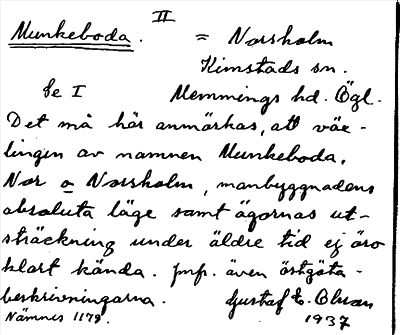 II
Munkeboda. = Norsholm
Kimstads sn.
Se I Memmings hd. Ögl.
Det må här anmärkas, att väx-
lingen av namnen Munkeboda,
Nor o Norsholm, manbyggnadens
absoluta läge samt ägornas ut-
sträckning under äldre tid ej äro
klart kända. Jmf. även östgöta-
beskrivningarna. Gustaf E. Olsson
Nämnes 1179. 1937